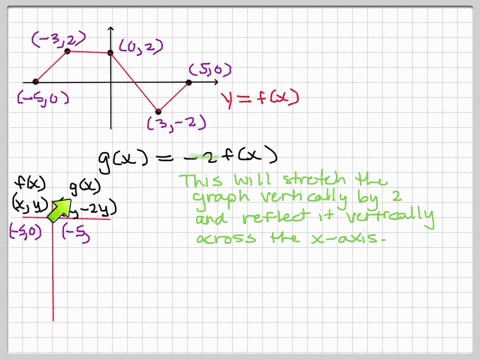 (-3,2)
(0,2)
(5,0)
(-5,0)
y = f(x)
(3,-2)
g(x) = -2f(x)
f(x) g(x)
(x,y) -2y)
(-5,0) (-5,
This will stretch the
graph vertically by 2
and reflect it vertically
across the x-axis.